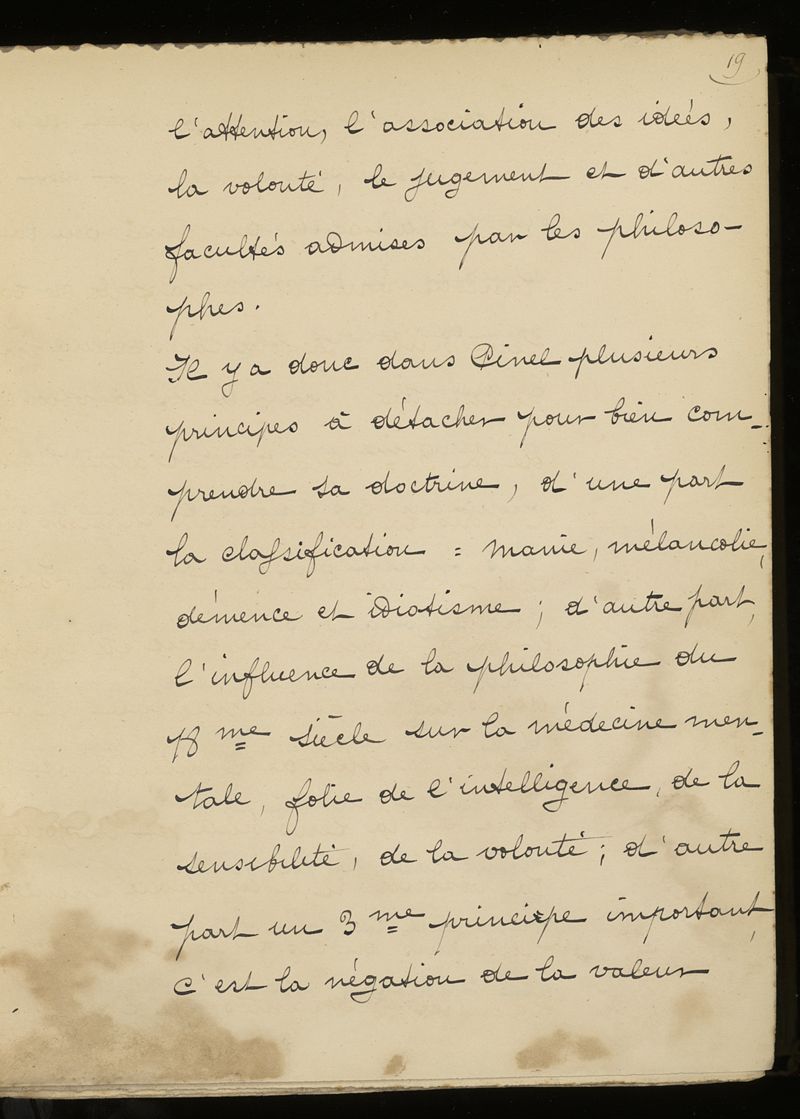 19
l'attention, l'association des ideés,
la volonté, le jugement et d'autres
facultés admises par les philoso-
phes.
Il y a donc dans Pinel plusieurs
principes à détacher pour bien com-
prendre sa doctrine, d'une part
la classification : manie, mélancolie,
démence et idiotisme ; d'autre part,
l'influence de la philosophie du
18me siècle sur la médecine men-
tale, folie de l'intelligence, de la
sensibilité, de la volonté ; d'autre
part un 3me principe important,
c'est la négation de la valeur